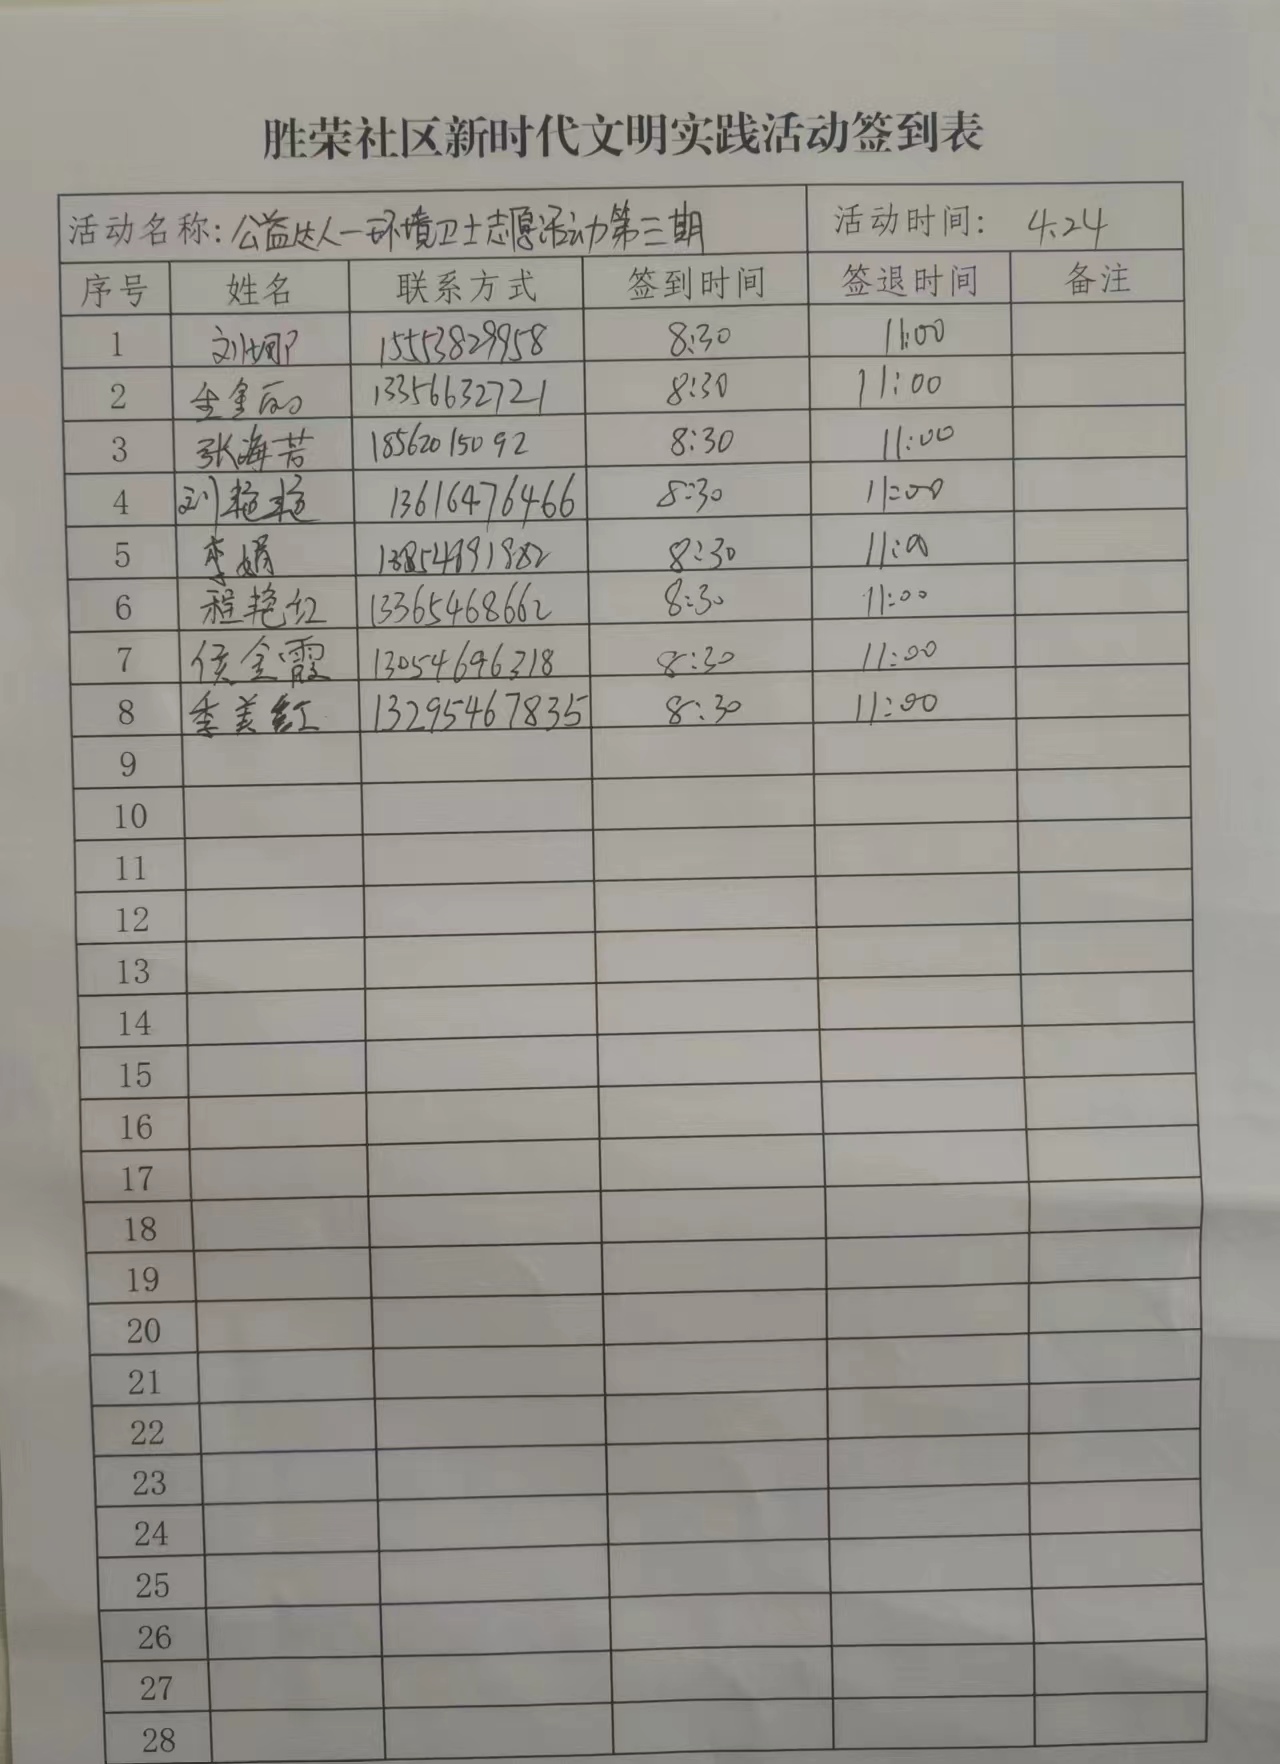 胜荣社区新时代文明实践活动签到表
活动名称：公益达人一环境卫士志愿活动第三期 活动时间： 4.24
序号 姓名 联系方式 签到时间 签退时间 备注
1 刘娜 15553829958 8:30 11:00
2 13356632721 8:30 11:00
3 张海芳 18562015092 8:30 11:00
4 刘艳艳 13616476466 8:30 11:00
5 李娟 8:30 11:00
6 程艳红 13365468662 8:30 11:00
7 侯金霞 13054696318 8:30 11:00
8 季美红 13295467835 8:30 11:00
9
10
11
12
13
14
15
16
17
18
19
20
21
22
23
24
25
26
27
28